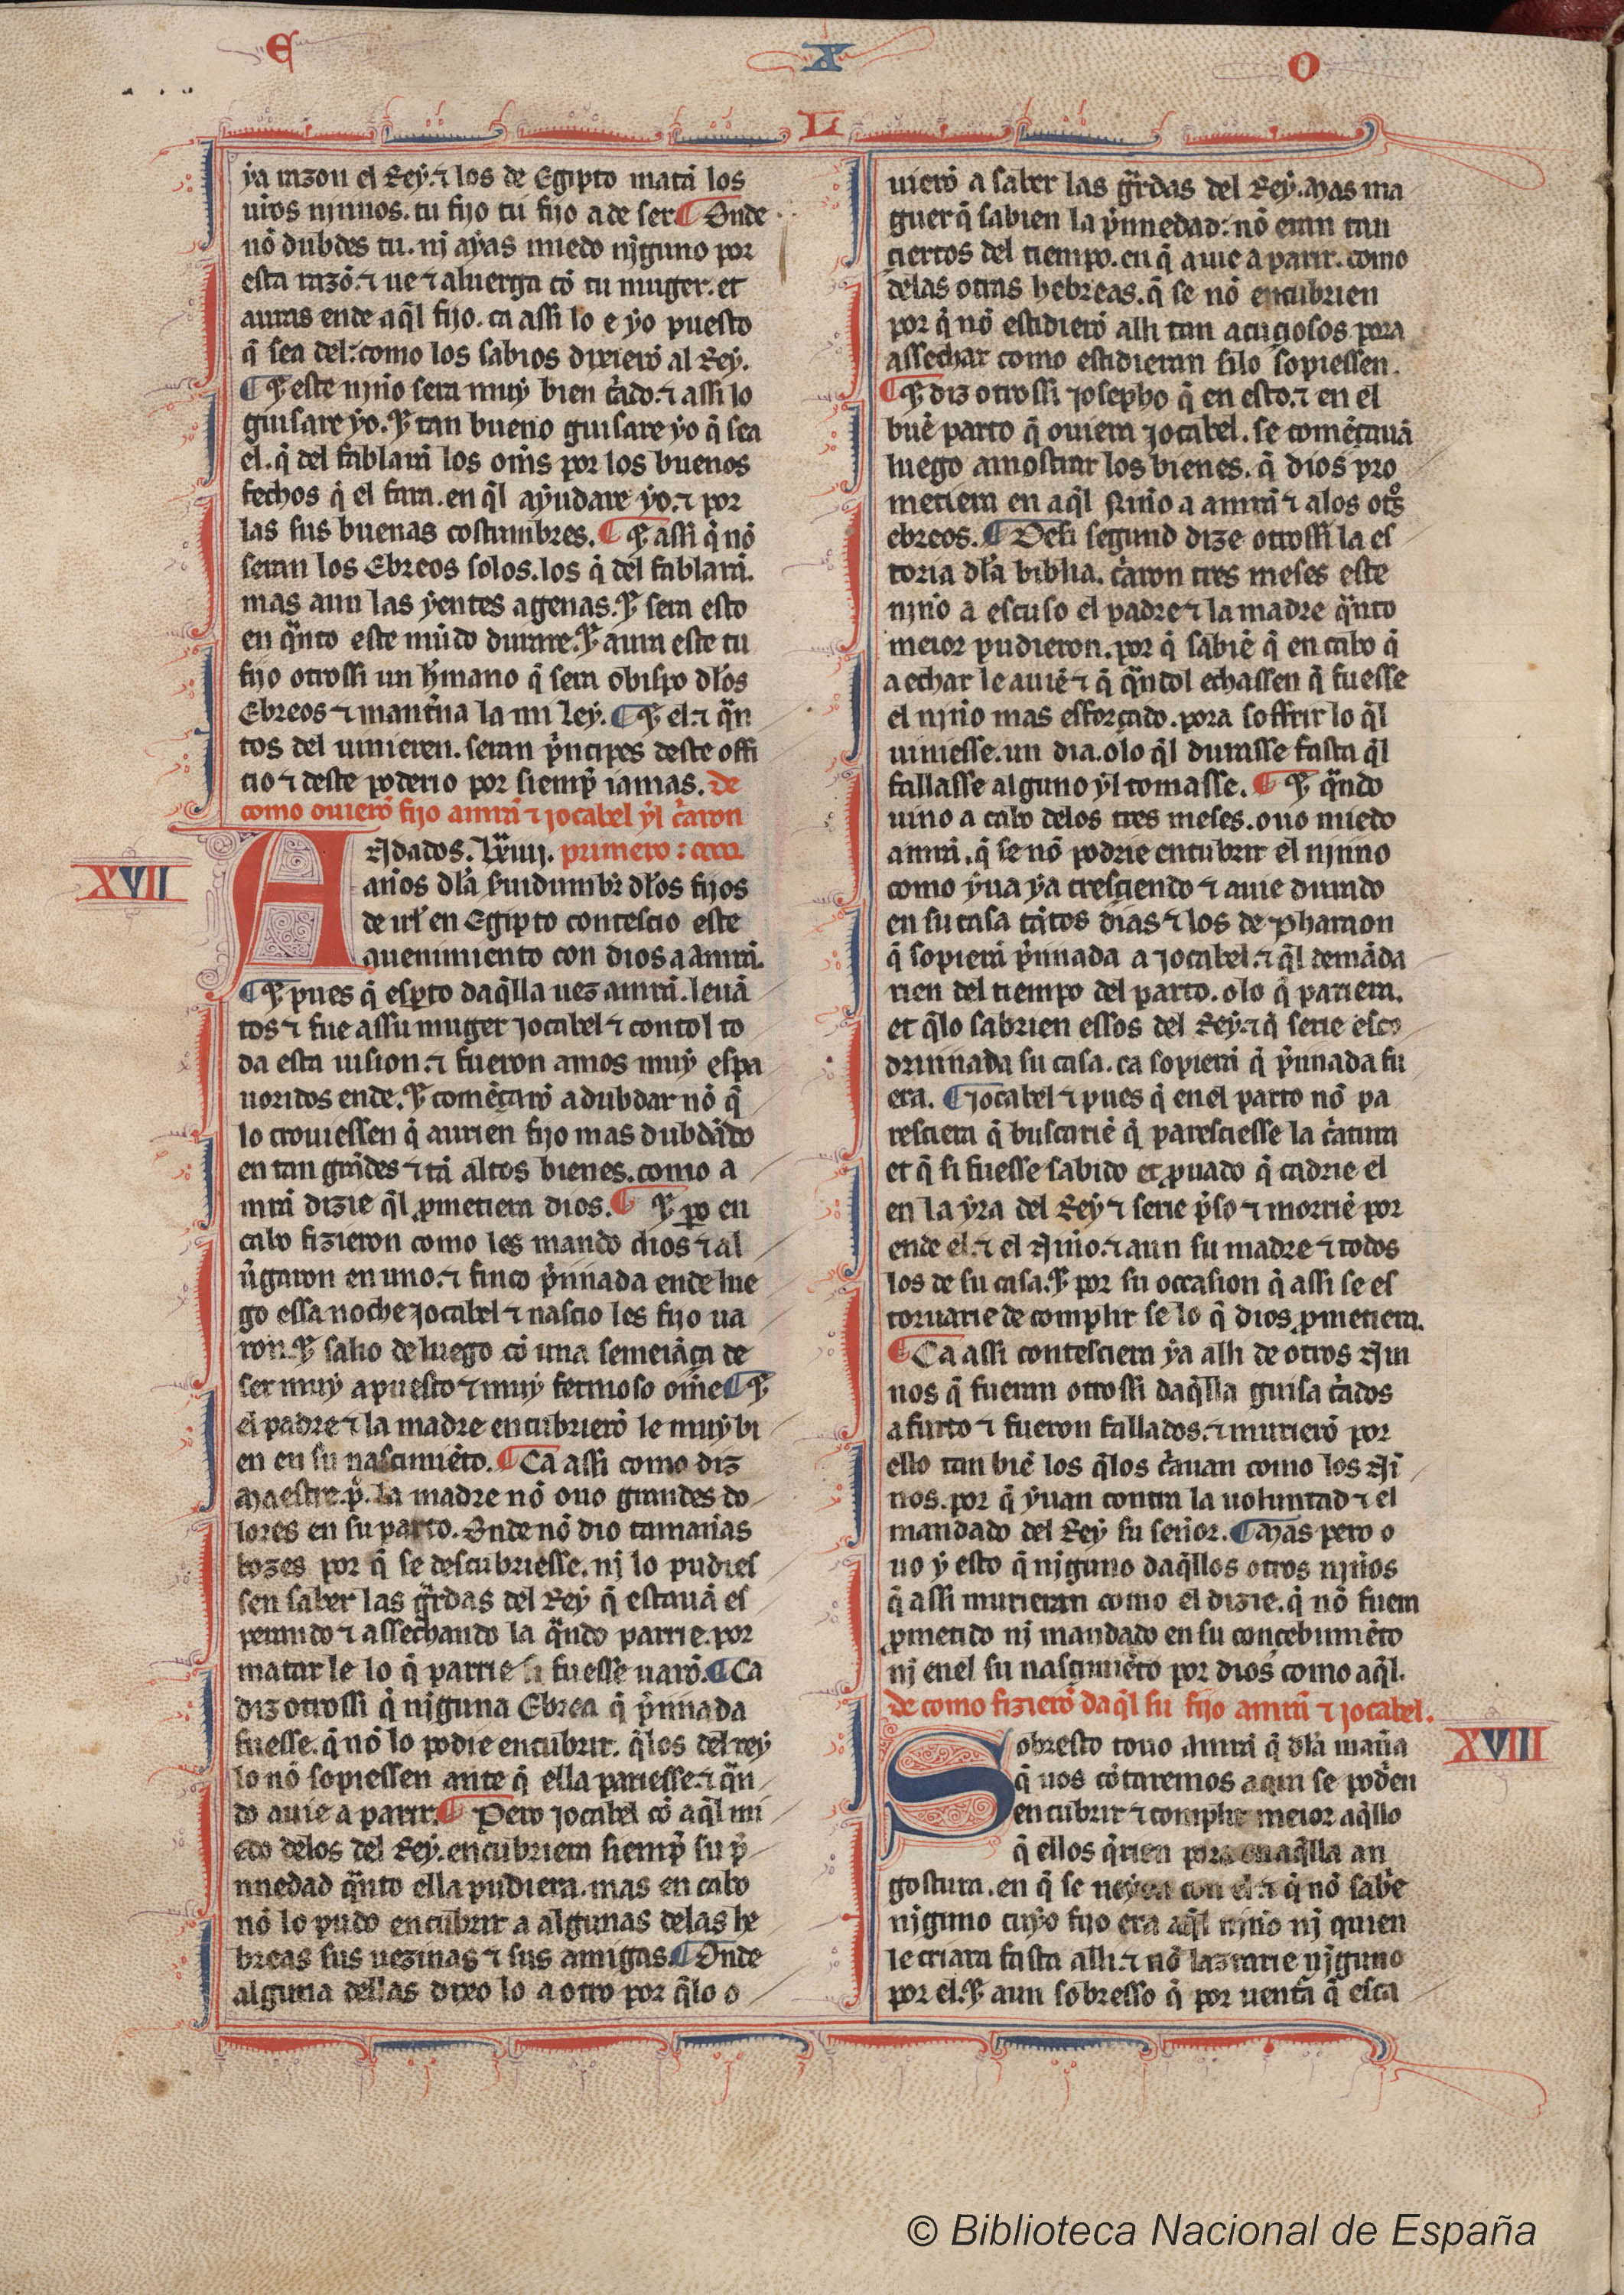 E X O
L
ya razon el Rey. ⁊ los de Egipto matã los
ur̃os nj̃nnos. tu fijo tu fijo a de ser ¶ Onde
nõ dubdes tu. nj ayas miedo nj̃guno por
esta razõ. ⁊ ue ⁊ aluerga cõ tu muger. et
auras ende aq̃l fijo. ca assi lo e yo puesto
q̃ sea del: como los sabios dixierõ al Rey.
¶ Y este nin̄o sera muy bien c̃ado. ⁊ assi lo
guisare yo. Y tan bueno guisare yo q̃ sea
el. q̃ del fablarã los om̃s por los buenos
fechos q̃ el fara. en q̃l ayudare yo. ⁊ por
las sus buenas costumbres. ¶ Y assi q̃ nõ
seran los Ebreos solos. los q̃ del fablarã.
mas aun las yentes agenas. Y sera esto
en q̃nto este mũdo durare. Y aura este tu
fijo otrossi un h̃mano q̃ sera obispo dl̃os
Ebreos ⁊ mantr̃na la mi ley. ¶ Y el. ⁊ q̃n
tos del uinieren. seran p̃ncipes deste offi
cio ⁊ deste poderio por siemp̃ iamas. de
como ouierõ fijo amrã ⁊ jocabel yl c̃aron
XVII
Andados. Lxiiij. primero:
an̄os dl̃a s̃uidumbr̃ dl̃os fijos
de irl̃ en Egipto contescio este
auenimiento con dios a Amrã.
¶ Y pues q̃ esp̃to daq̃lla uez amrã. leuã
tos ⁊ fue assu muger jocabel ⁊ contol to
da esta uision. ⁊ fueron amos muy espa
uoridos ende. Y comẽçarõ a dubdar nõ q̃
lo crouiessen q̃ aurien fijo mas dubdãdo
en tan grãdes ⁊ tã altos bienes. como a
mrã dizie q̃l ꝓmetiera dios. ¶ Y ꝑo en
cabo fizieron como les mando dios ⁊ al
ũgaron en uno. ⁊ finco p̃nnada ende lue
go essa noche Jocabel ⁊ nascio les fijo ua
ron. Y salio de luego cõ una semeiãça de
ser muy apuesto ⁊ muy fermoso om̃e ¶ Y
el padre ⁊ la madre encubrierõ le muy bi
en en su nascimiẽto. ¶ Ca assi como diz
Maestre. p̃. la madre nõ ouo grandes do
lores en su parto. Onde nõ dio tamanãs
bozes por q̃ se descubriesse. nj lo pudies
sen saber las gr̃das del Rey q̃ estauã es
perando ⁊ assechando la q̃ndo parrie. por
matar le lo q̃ parrie si fuesse uarõ. ¶ Ca
diz otrossi q̃ nj̃guna Ebrea q̃ p̃nnada
fuesse. q̃ nõ lo podie encubrir. q̃los del rey
lo nõ sopiessen ante q̃ ella pariesse. ⁊ q̃n
do auie a parir. ¶ Pero jocabel cõ aq̃l mi
edo delos del Rey. encubriera siemp̃ su p̃
nnedad q̃nto ella pudiera. mas en cabo
nõ lo pudo encubrir a algunas delas he
breas sus uezinas ⁊ sus amigas. ¶ Onde
alguna dellas dixo lo a otro por q̃lo o
uierõ a saber las gr̃das del Rey. Mas ma
guer q̃ sabien la p̃nnedad: nõ eran tan
çiertos del tiempo. en q̃ auie a parir. como
delas otras hebreas. q̃ se nõ encubrien
por q̃ nõ estidierõ alli tan acuciosos pora
assechar como estidieran silo sopiessen.
¶ Y diz otrossi josepho q̃ en esto. ⁊ en el
buẽ parto q̃ ouiera jocabel. se comẽçauã
luego amostrar los bienes. q̃ dios pro
metiera en aq̃l Nin̄o a amrã ⁊ alos otr̃s
ebreos. ¶ Desi segund dize otrossi la es
toria dl̃a biblia. c̃aron tres meses este
nin̄o a escuso el padre ⁊ la madre q̃nto
meior pudieron. por q̃ sabiẽ q̃ en cabo q̃
a echar le auiẽ ⁊ q̃ q̃ndol echassen q̃ fuesse
el nin̄o mas esforçado. pora soffrir lo q̃l
uiniesse. un dia. olo q̃l durasse fasta q̃l
fallasse alguno yl tomasse. ¶ Y q̃ndo
uino a cabo delos tres meses. ouo miedo
amrã. q̃ se nõ podrie encubrir el nj̃nno
como yua ya cresçiendo ⁊ auie durado
en su casa tãtos dias ⁊ los de Pharaon
q̃ sopierã p̃nnada a jocabel. ⁊ q̃l demãda
rien del tiempo del parto. olo q̃ pariera.
et q̃lo sabrien essos del Rey. ⁊ q̃ serie esco
drinnada su casa. ca sopierã q̃ p̃nnada fu
era. ¶ Jocabel ⁊ pues q̃ enel parto nõ pa
resciera q̃ buscariẽ q̃ paresciesse la c̃atura
et q̃ si fuesse sabido et ꝓuado q̃ cadrie el
en la yra del Rey ⁊ serie p̃so ⁊ morriẽ por
ende el. ⁊ el Nin̄o. ⁊ aun su madre ⁊ todos
los de su casa. Y por su occasion q̃ assi se es
toruarie de complir se lo q̃ dios ꝓmetiera.
¶ Ca assi contesciera ya alli de otros Nin
nos q̃ fueran otrossi daq̃lla guisa c̃ados
a furto ⁊ fueron fallados. ⁊ murierõ por
ello tan biẽ los q̃los c̃auan como los Nĩ
nos. por q̃ yuan contra la uoluntad ⁊ el
mandado del Rey su sen̄or. ¶ Mas pero o
uo y esto q̃ nj̃guno daq̃llos otros nin̄os
q̃ assi murieran como el dizie. q̃ nõ fuera
ꝓmetido nj mandado en su concebimiẽto
nj enel su nasçimiẽto por dios como aq̃l.
de como fizierõ daq̃l su fijo amrã ⁊ jocabel.
XVIII
Sobresto touo Amrã q̃ dl̃a man̄a
q̃ uos cõtaremos aqui se pod̃en
encubrir ⁊ complir meior aq̃llo
q̃ ellos q̃rien pora en aq̃lla an
gostura. en q̃ se ueyen con el. ⁊ q̃ nõ sab̃e
nj̃guno cuyo fijo era aq̃l nin̄o nj quien
le criara fasta alli. ⁊ nõ lazrarie nj̃guno
por el. Y aun sobresso q̃ por uent̃a q̃ esca
© Biblioteca Nacional de España